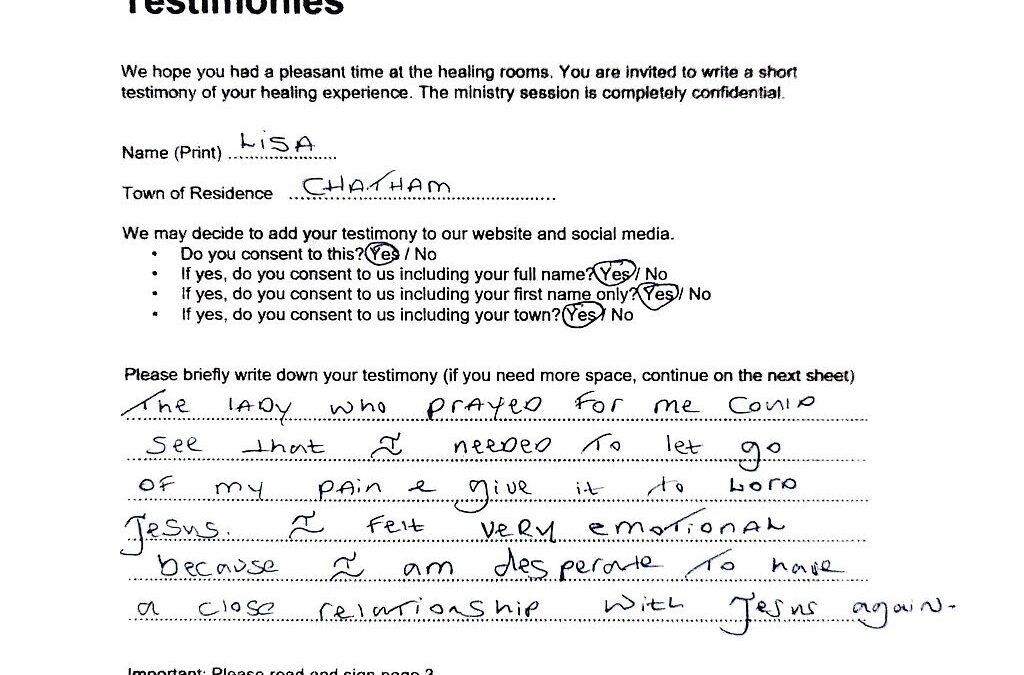 Testimonies
We hope you had a pleasant time at the healing rooms. You are invited to write a short
testimony of your healing experience. The ministry session is completely confidential.
Name (Print) LiSA
Town of Residence CHATHAM
We may decide to add your testimony to our website and social media.
• Do you consent to this? Yes / No
• If yes, do you consent to us including your full name? Yes / No
• If yes, do you consent to us including your first name only? Yes / No
• If yes, do you consent to us including your town? Yes / No
Please briefly write down your testimony (if you need more space, continue on the next sheet)
The LADY who PRAYED For me Could
See that I needed To let go
OF my PAin & give it to LORD
Jesus. I Felt VeRy emotionAL
because I am desperate To have
a close relationship With Jesus again.
Important: Please read and sign page 2